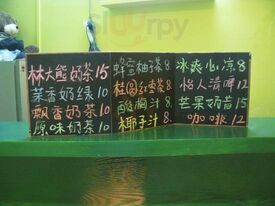 林大熊奶茶15
茉香奶绿10
飘香奶茶10
原味奶茶10
蜂蜜柚子茶8
桂圆红枣茶8
酸梅汁8
椰子汁8
冰爽心凉8
怡人清啤12
芒果奶昔15
咖啡12